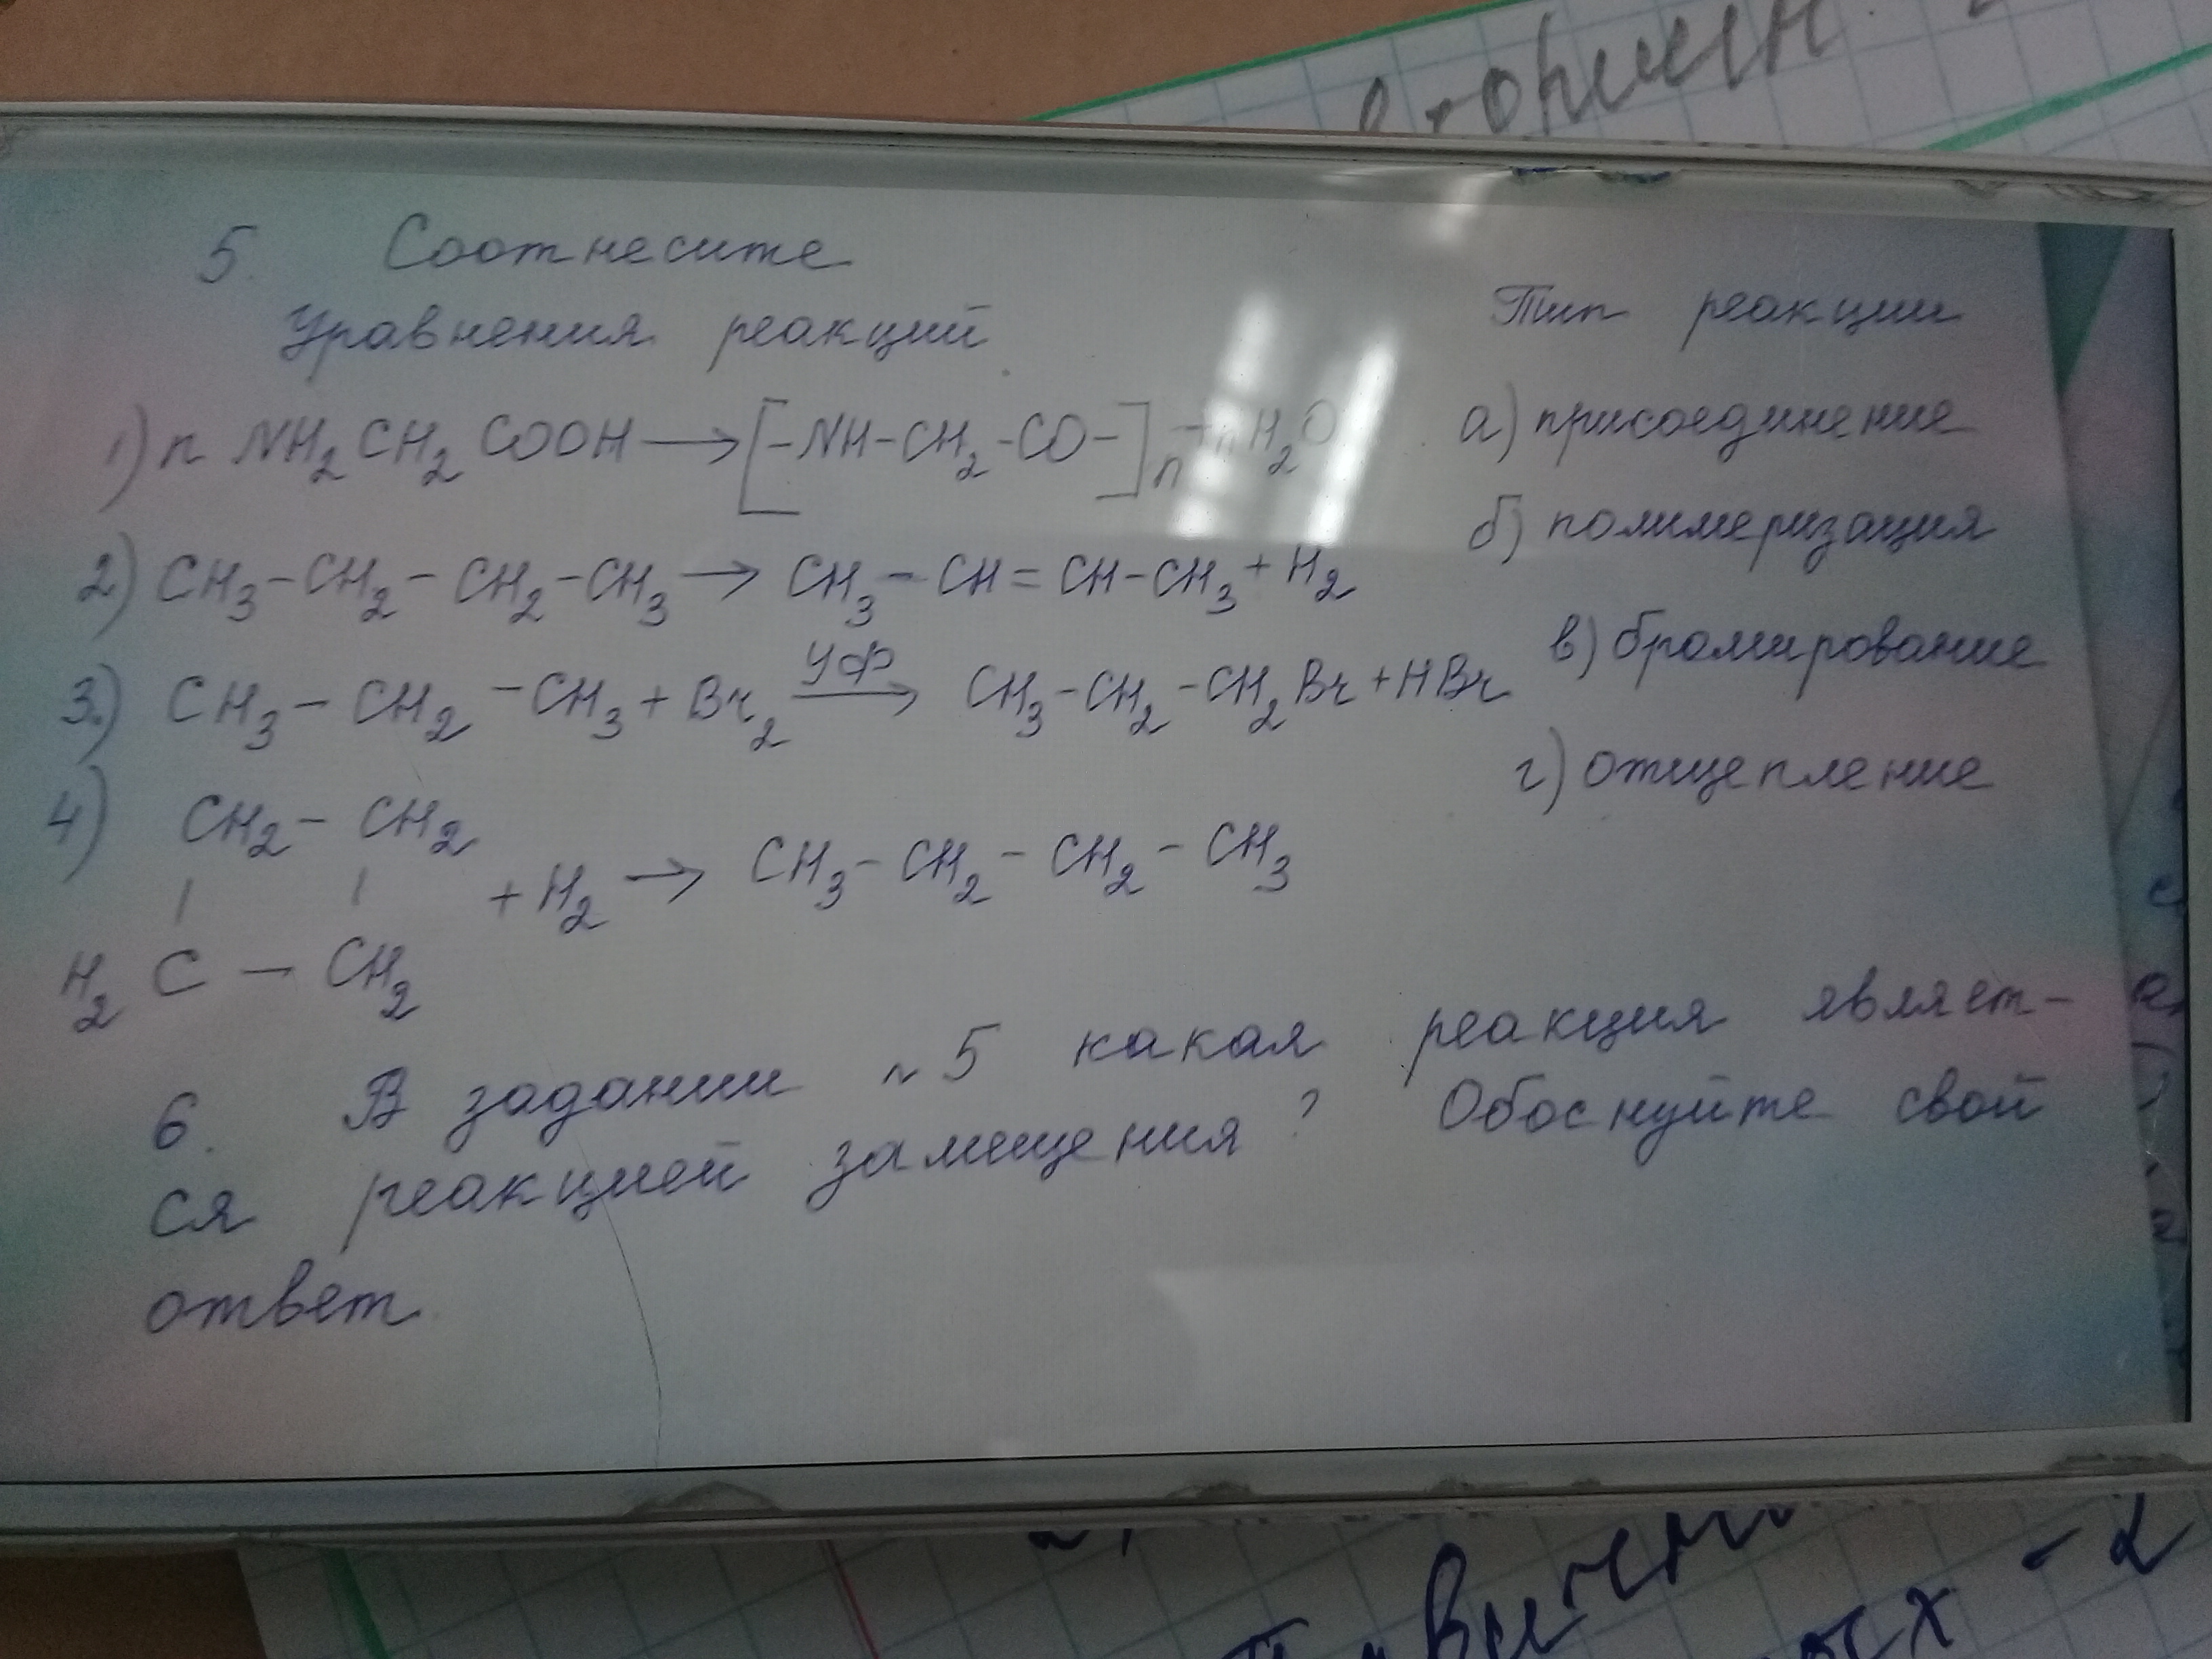 5. Соотнесите
Уравнения реакций
Тип реакции
1) n NH2CH2COOH → [-NH-CH2-CO-]n + nH2O
а) присоединение
б) полимеризация
2) CH3-CH2-CH2-CH3 → CH3-CH=CH-CH3+H2
в) бромирование
3.) CH3-CH2-CH3+Br2 УФ→ CH3-CH2-CH2Br+HBr
г) отщепление
4) CH2-CH2
| | +H2 → CH3-CH2-CH2-CH3
H2C-CH2
6. В задании n 5 какая реакция являет-
ся реакцией замещения? Обоснуйте свой
ответ
- 2